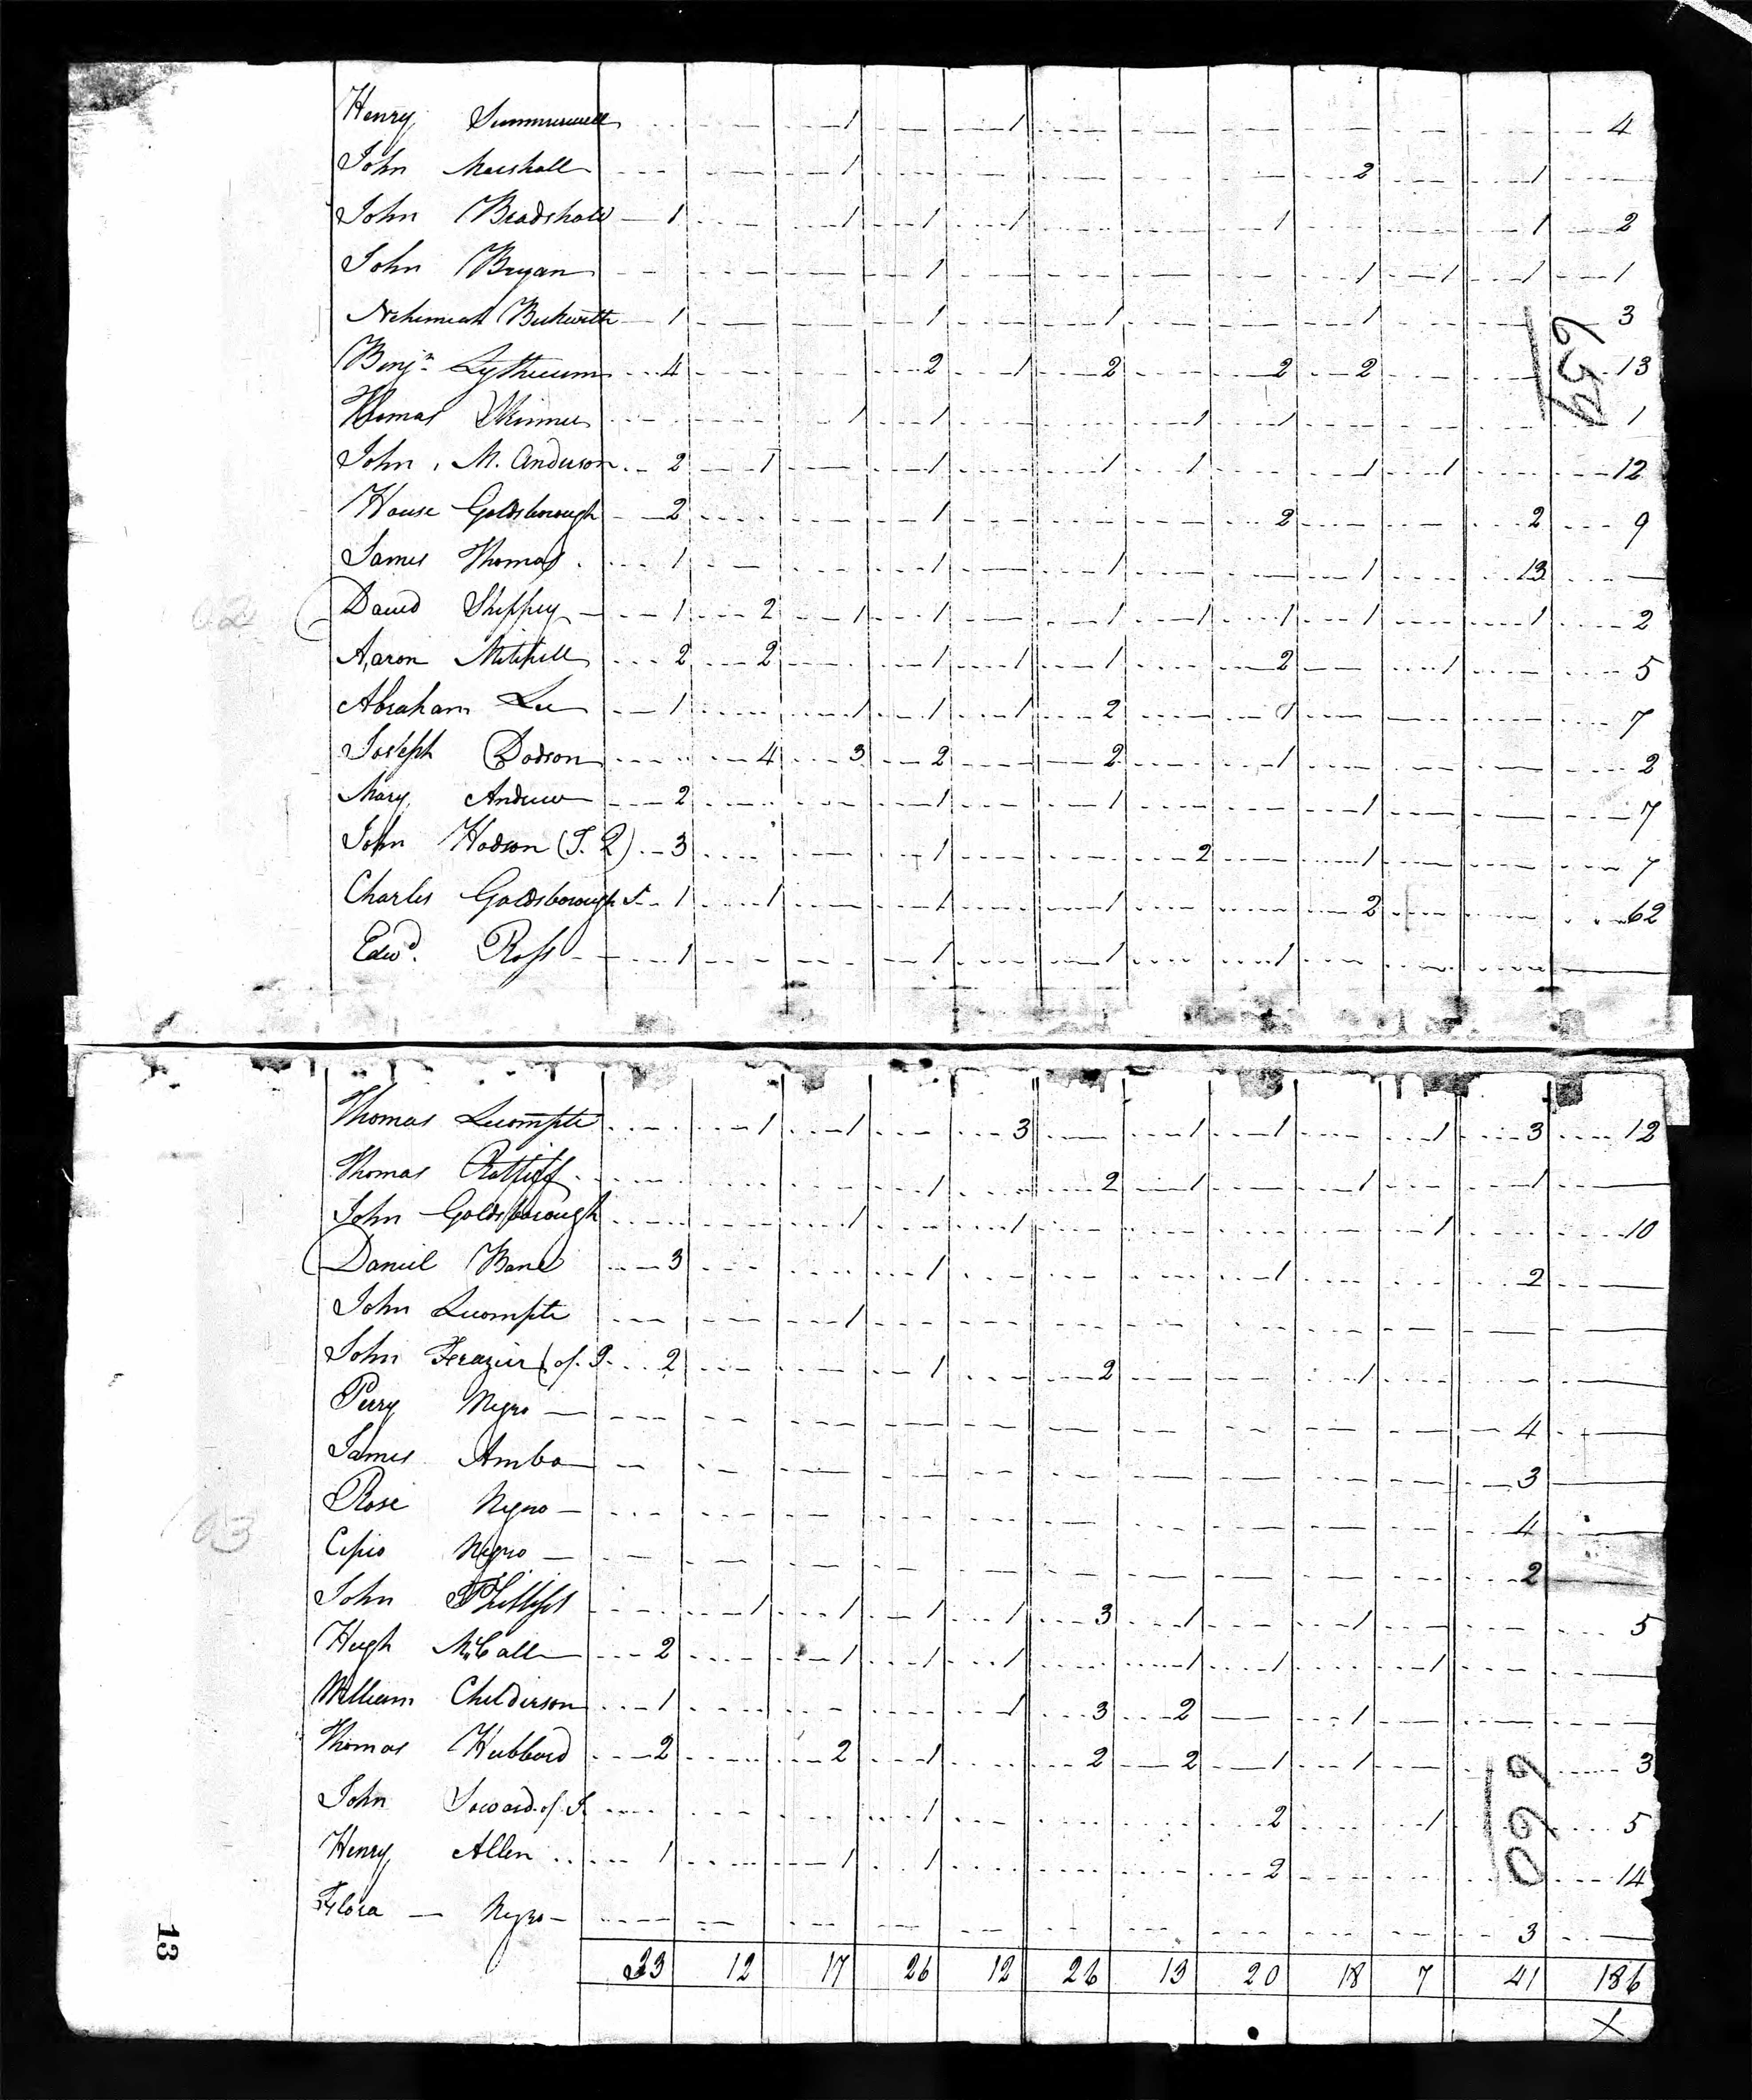 Henry Summerwell 1 1 4
John Marshall 1 2 1
John Bradshaw 1 1 1 1 1 1 2
John Bryan 1 1 1 1 1
Nehemiah Beckwith 1 1 1 1 3
Benjn Lythicum 4 2 1 2 2 2 13
Thomas Skinner 1 1 1 1 1
John M. Anderson 2 1 1 1 1 1 1 12
House Goldsborough 2 1 2 2 9
James Thomas 1 1 1 1 13
David Sheppey 1 2 1 1 1 1 1 1 1 2
Aaron Mitchell 2 2 1 1 1 2 1 5
Abraham Lee 1 1 1 1 2 1 7
Joseph Dodson 4 3 2 2 1 2
Mary Andrew 2 1 1 1 7
John Hodson (T. 2) 3 1 2 1 7
Charles Goldsborough J. 1 1 1 1 2 62
Edwd. Ross 1 1 1 1
659
02
Thomas Lecompte 1 1 3 1 1 1 3 12
Thomas Ratliff 1 2 1 1 1
John Goldsborough 1 1 1 10
Daniel Bane 3 1 1 2
John Lecompte 1
John Frazier (of. J. 2 1 2 1
Perry Negro 4
James Amba 3
Rose Negro 4
Cipio Negro 2
John Phillips 1 1 1 1 3 1 1 5
Hugh McCall 2 1 1 1 1 1 1
William Childerson 1 1 3 2 1
Thomas Hubbard 2 2 1 2 2 1 1 3
John Soward of J. 1 2 1 5
Henry Allen 1 1 1 2 14
Flora Negro 3
33 12 17 26 12 26 13 20 18 7 41 186
X
03
660
13